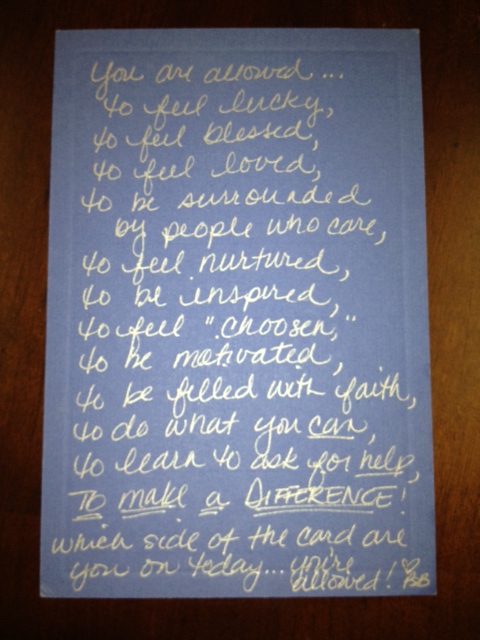 You are allowed...
to feel lucky,
to feel blessed,
to feel loved,
to be surrounded
by people who care,
to feel nurtured,
to be inspired,
to feel "choosen,"
to be motivated,
to be filled with faith,
to do what you can,
to learn to ask for help,
TO make a DIFFERENCE!
which side of the card are
you on today... you're
allowed! ♡ BB